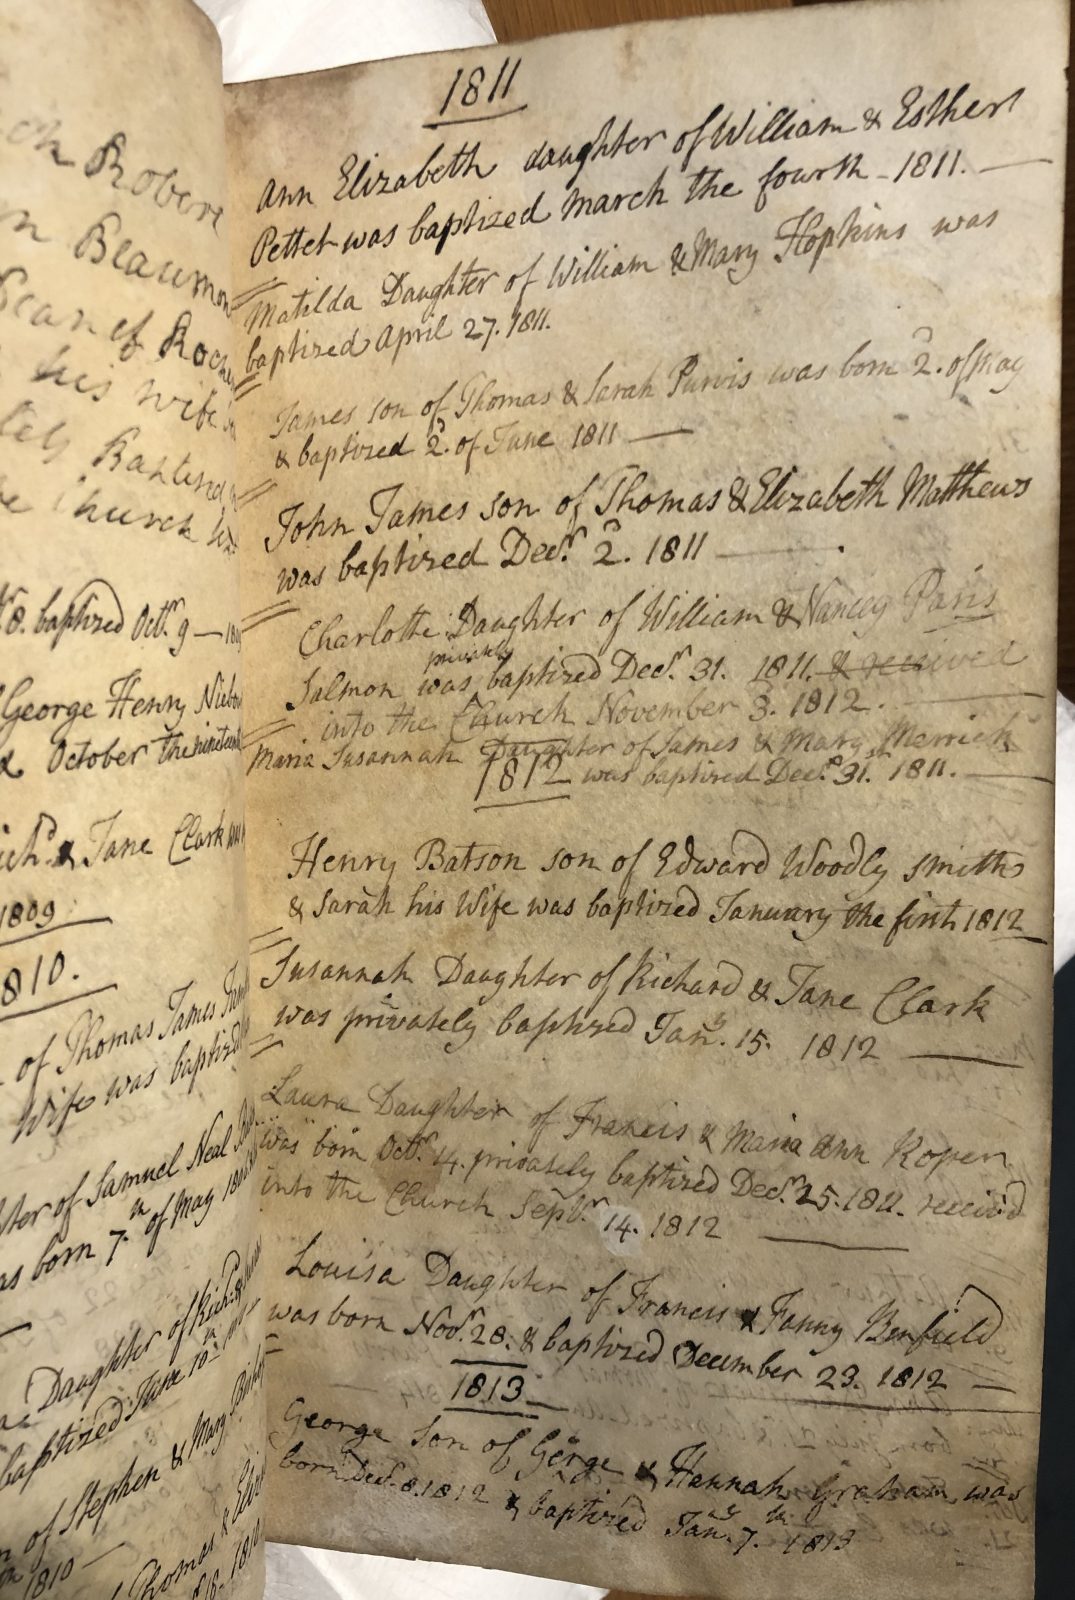 Robert
Beaumon
Dean of Roch
his wife
tely Baptized
Church
8. baptized Octr. 9 — 18
George Henry Niebo
October the nineteenth
Richd. & Jane Clark was
1809
1810.
of Thomas James
Wife was baptized
ter of Samuel Neal
as born 7.th of May 1810
Daughter of Richd. &
baptized June 10th
n of Stephen & Mary
1810 —
Thomas & Eliz
18. 1810
1811
Ann Elizabeth daughter of William & Esther
Pettet was baptized March the fourth - 1811. —
Matilda Daughter of William & Mary Hopkins was
baptized April 27. 1811.
James son of Thomas & Sarah Purvis was born 2d. of May
& baptized 2d. of June 1811 —
John James son of Thomas & Elizabeth Matthews
was baptized Decr. 2d. 1811 — .
Charlotte Daughter of William & Nancy Paris
privately
Salmon was baptized Decr. 31. 1811. & received
into the Church November 3. 1812. —
Maria Susannah Daughter of James & Mary Merrick
1812 was baptized Decr. 31st. 1811. —
Henry Batson son of Edward Woodly Smith
& Sarah his Wife was baptized January the first 1812
Susannah Daughter of Richard & Jane Clark
was privately baptized Jany. 15. 1812 —
Laura Daughter of Francis & Maria Ann Roper
was born Octr. 14. privately baptized Decr. 25. 1811. receiv'd
into the Church Septr. 14. 1812 —
Louisa Daughter of Francis & Fanny Benfield
was born Novr. 28. & baptized December 23. 1812 —
1813.
George Son of Gorge & Hannah Graham was
born Decr. 8. 1812 & baptized Jany. 7.th 1813